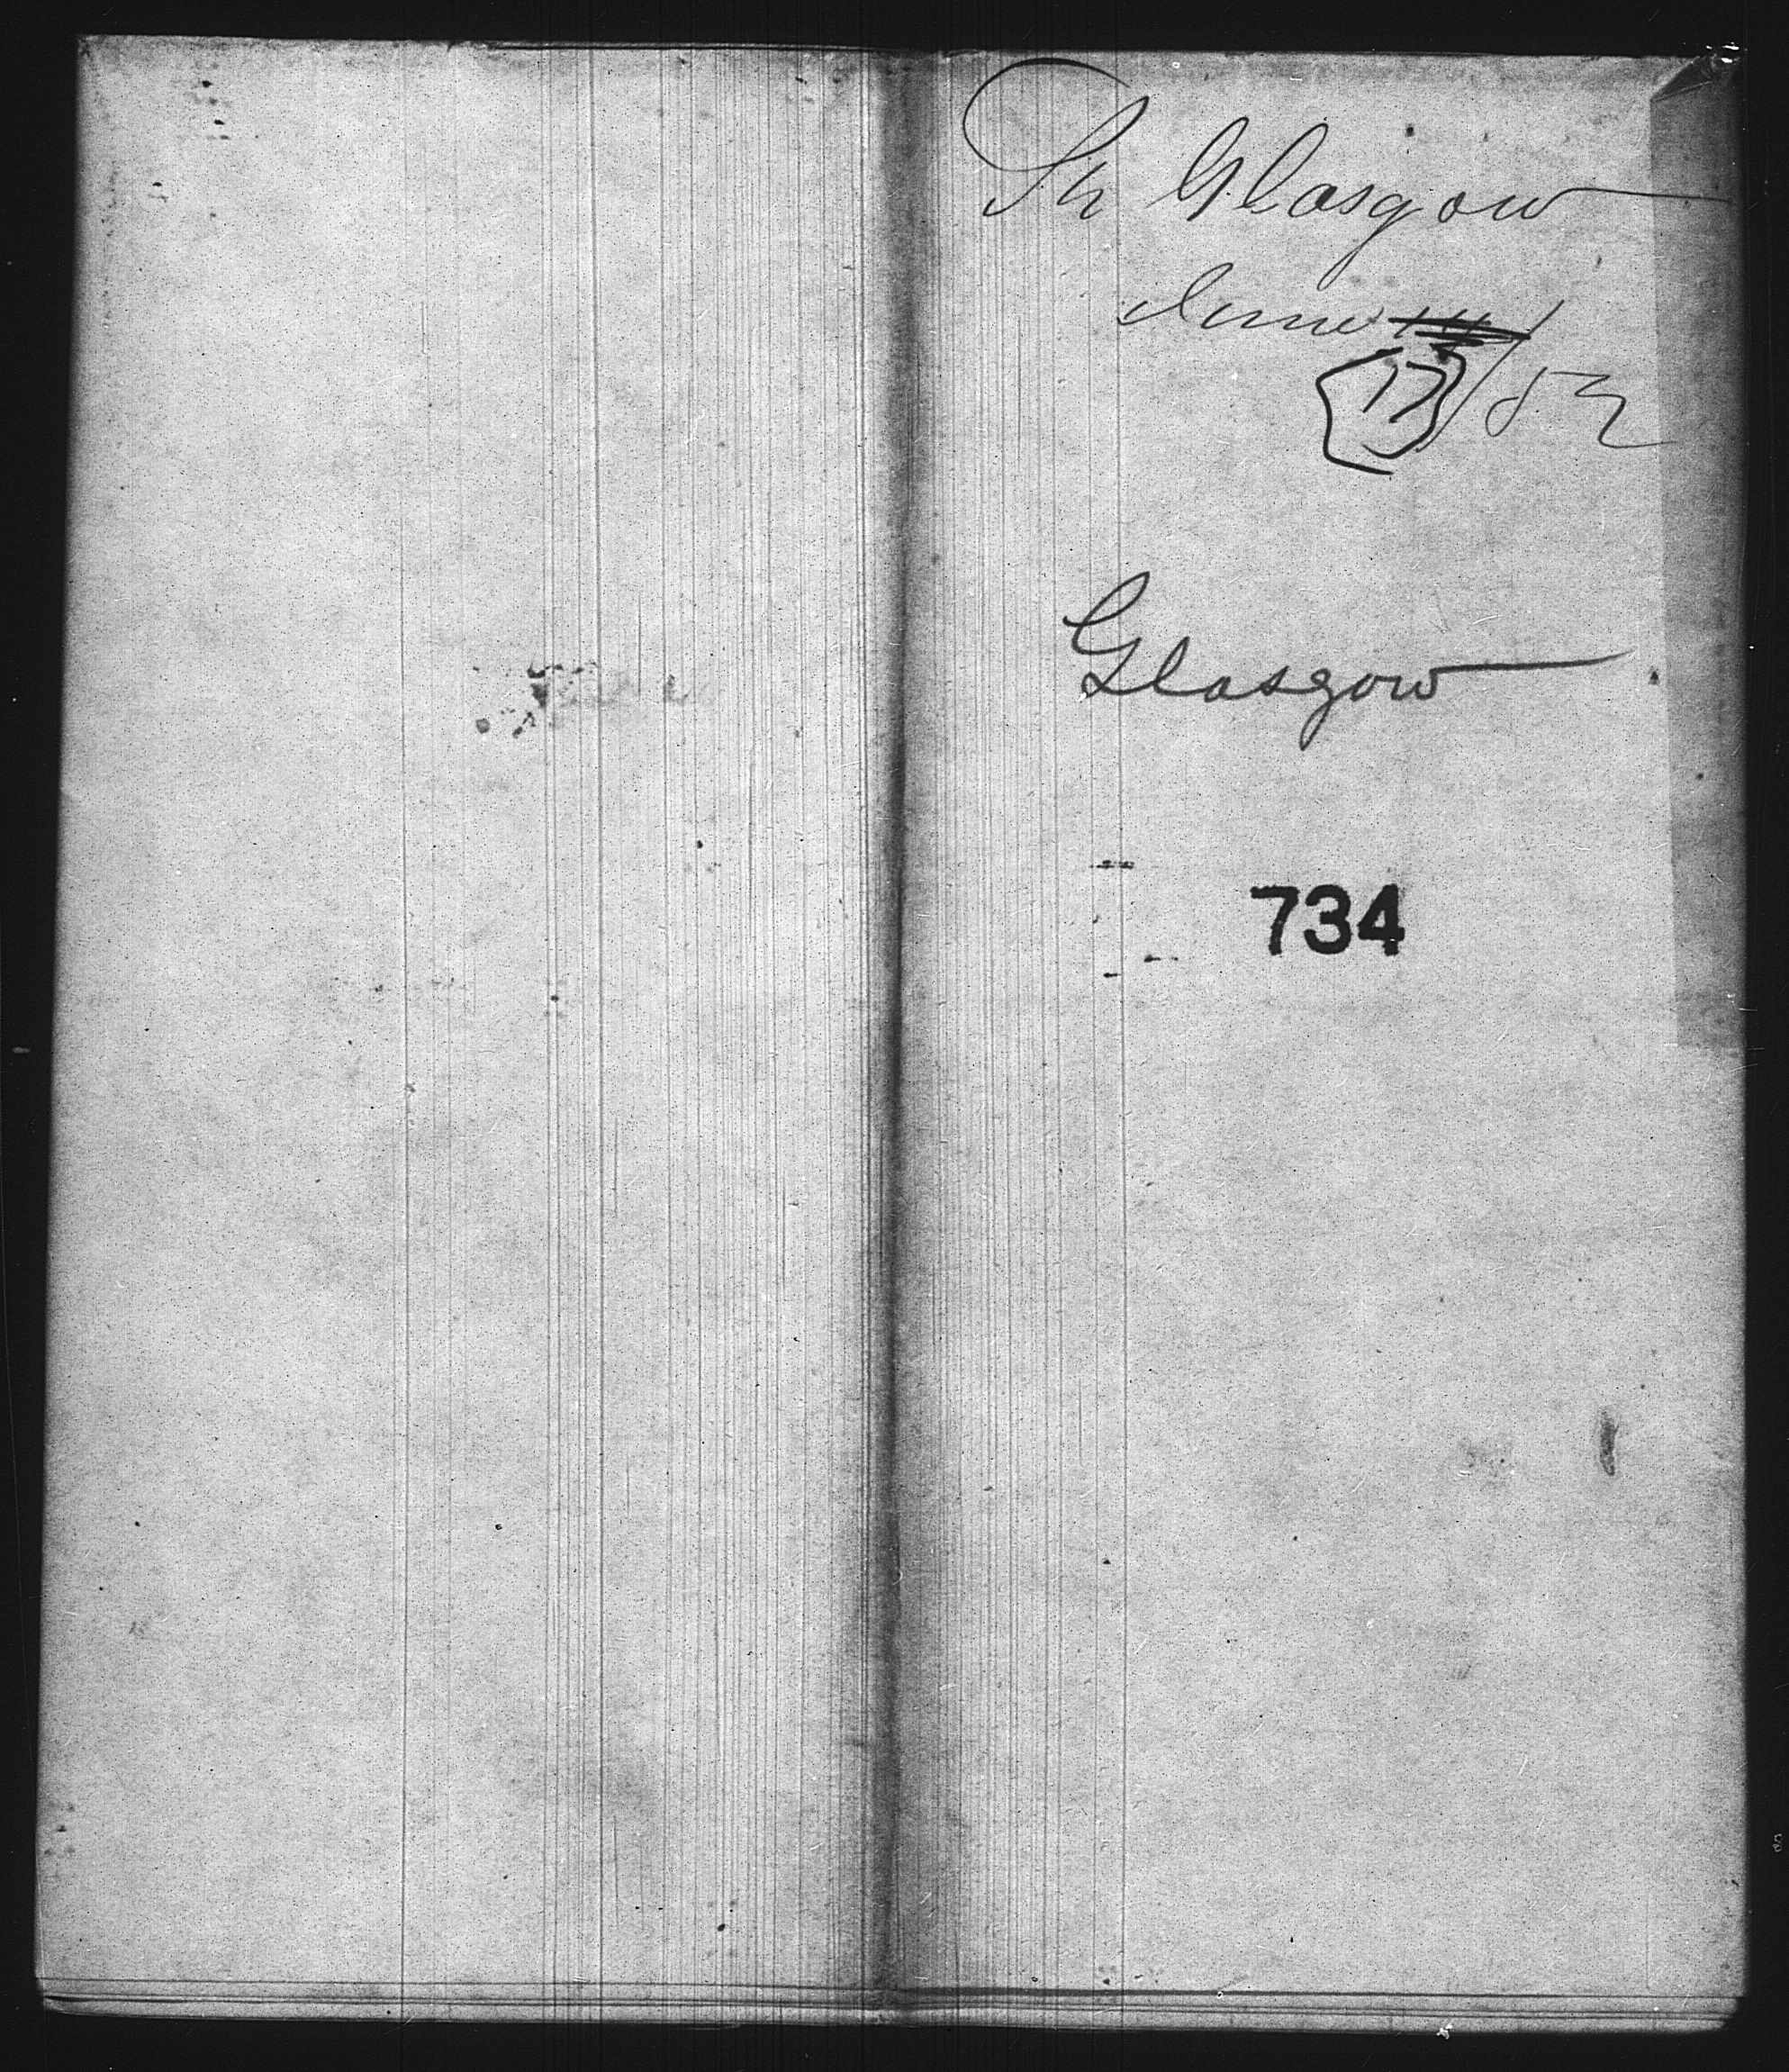 Sh Glasgow
June 14/52
17
Glasgow
734